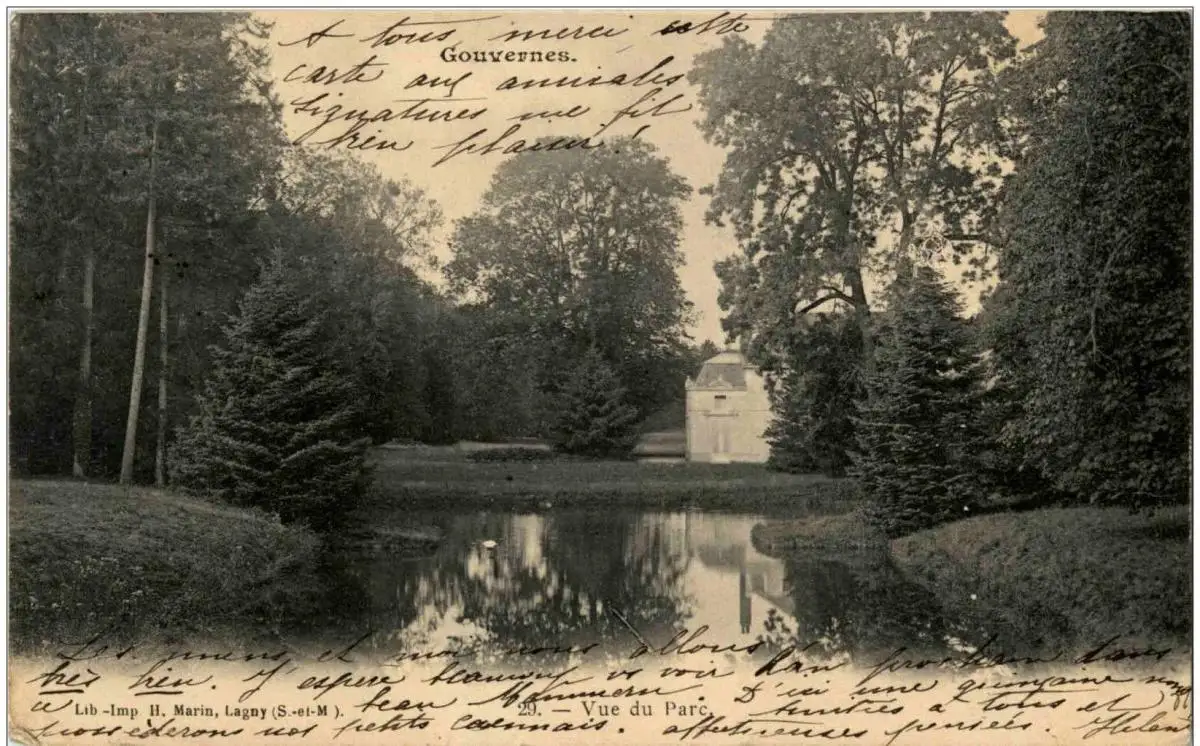 A tous merci cette
Gouvernes.
carte aux amicales
signatures me fit
bien plaisir !
Les miens et moi nous allons
très bien. J'espère beaucoup vs voir l'an prochain dans
beau D'ici une quinzaine nous
Lib-Imp H. Marin, Lagny (S.-et-M).
29. — Vue du Parc.
à tous et
possèderons nos petits
affectueuses pensées.